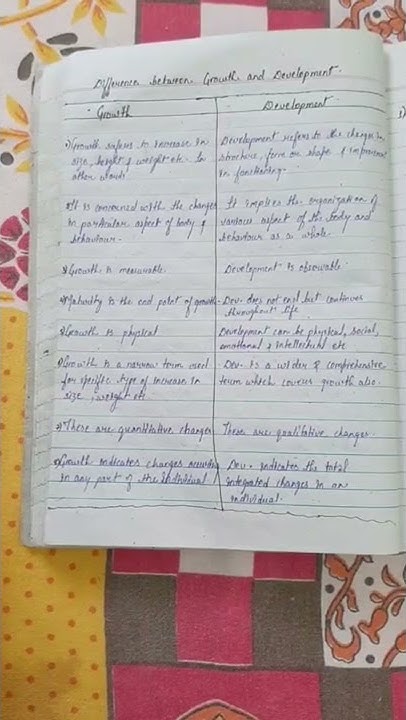 Difference between Growth and Development.
Growth
Development
1) Growth refers to increase in
size, height & weight etc. In
other words
Development refers to the changes in
structure, form or shape & improvement
in functioning.
2) It is concerned with the changes
in particular aspect of body &
behaviour.
It implies the organization of
various aspect of the body and
behaviour as a whole.
3) Growth is measurable.
Development is observable
4) Maturity is the end point of growth.
Dev. does not end but continues
throughout life
5) Growth is physical
Development can be physical, social,
emotional & intellectual etc
6) Growth is a narrow term used
for specific type of increase in
size, weight etc
Dev. is a wider & comprehensive
term which covers growth also.
7) These are quantitative changes
These are qualitative changes.
8) Growth indicates changes
in any part of the individual
Dev. indicates the total
integrated changes in an
individual.